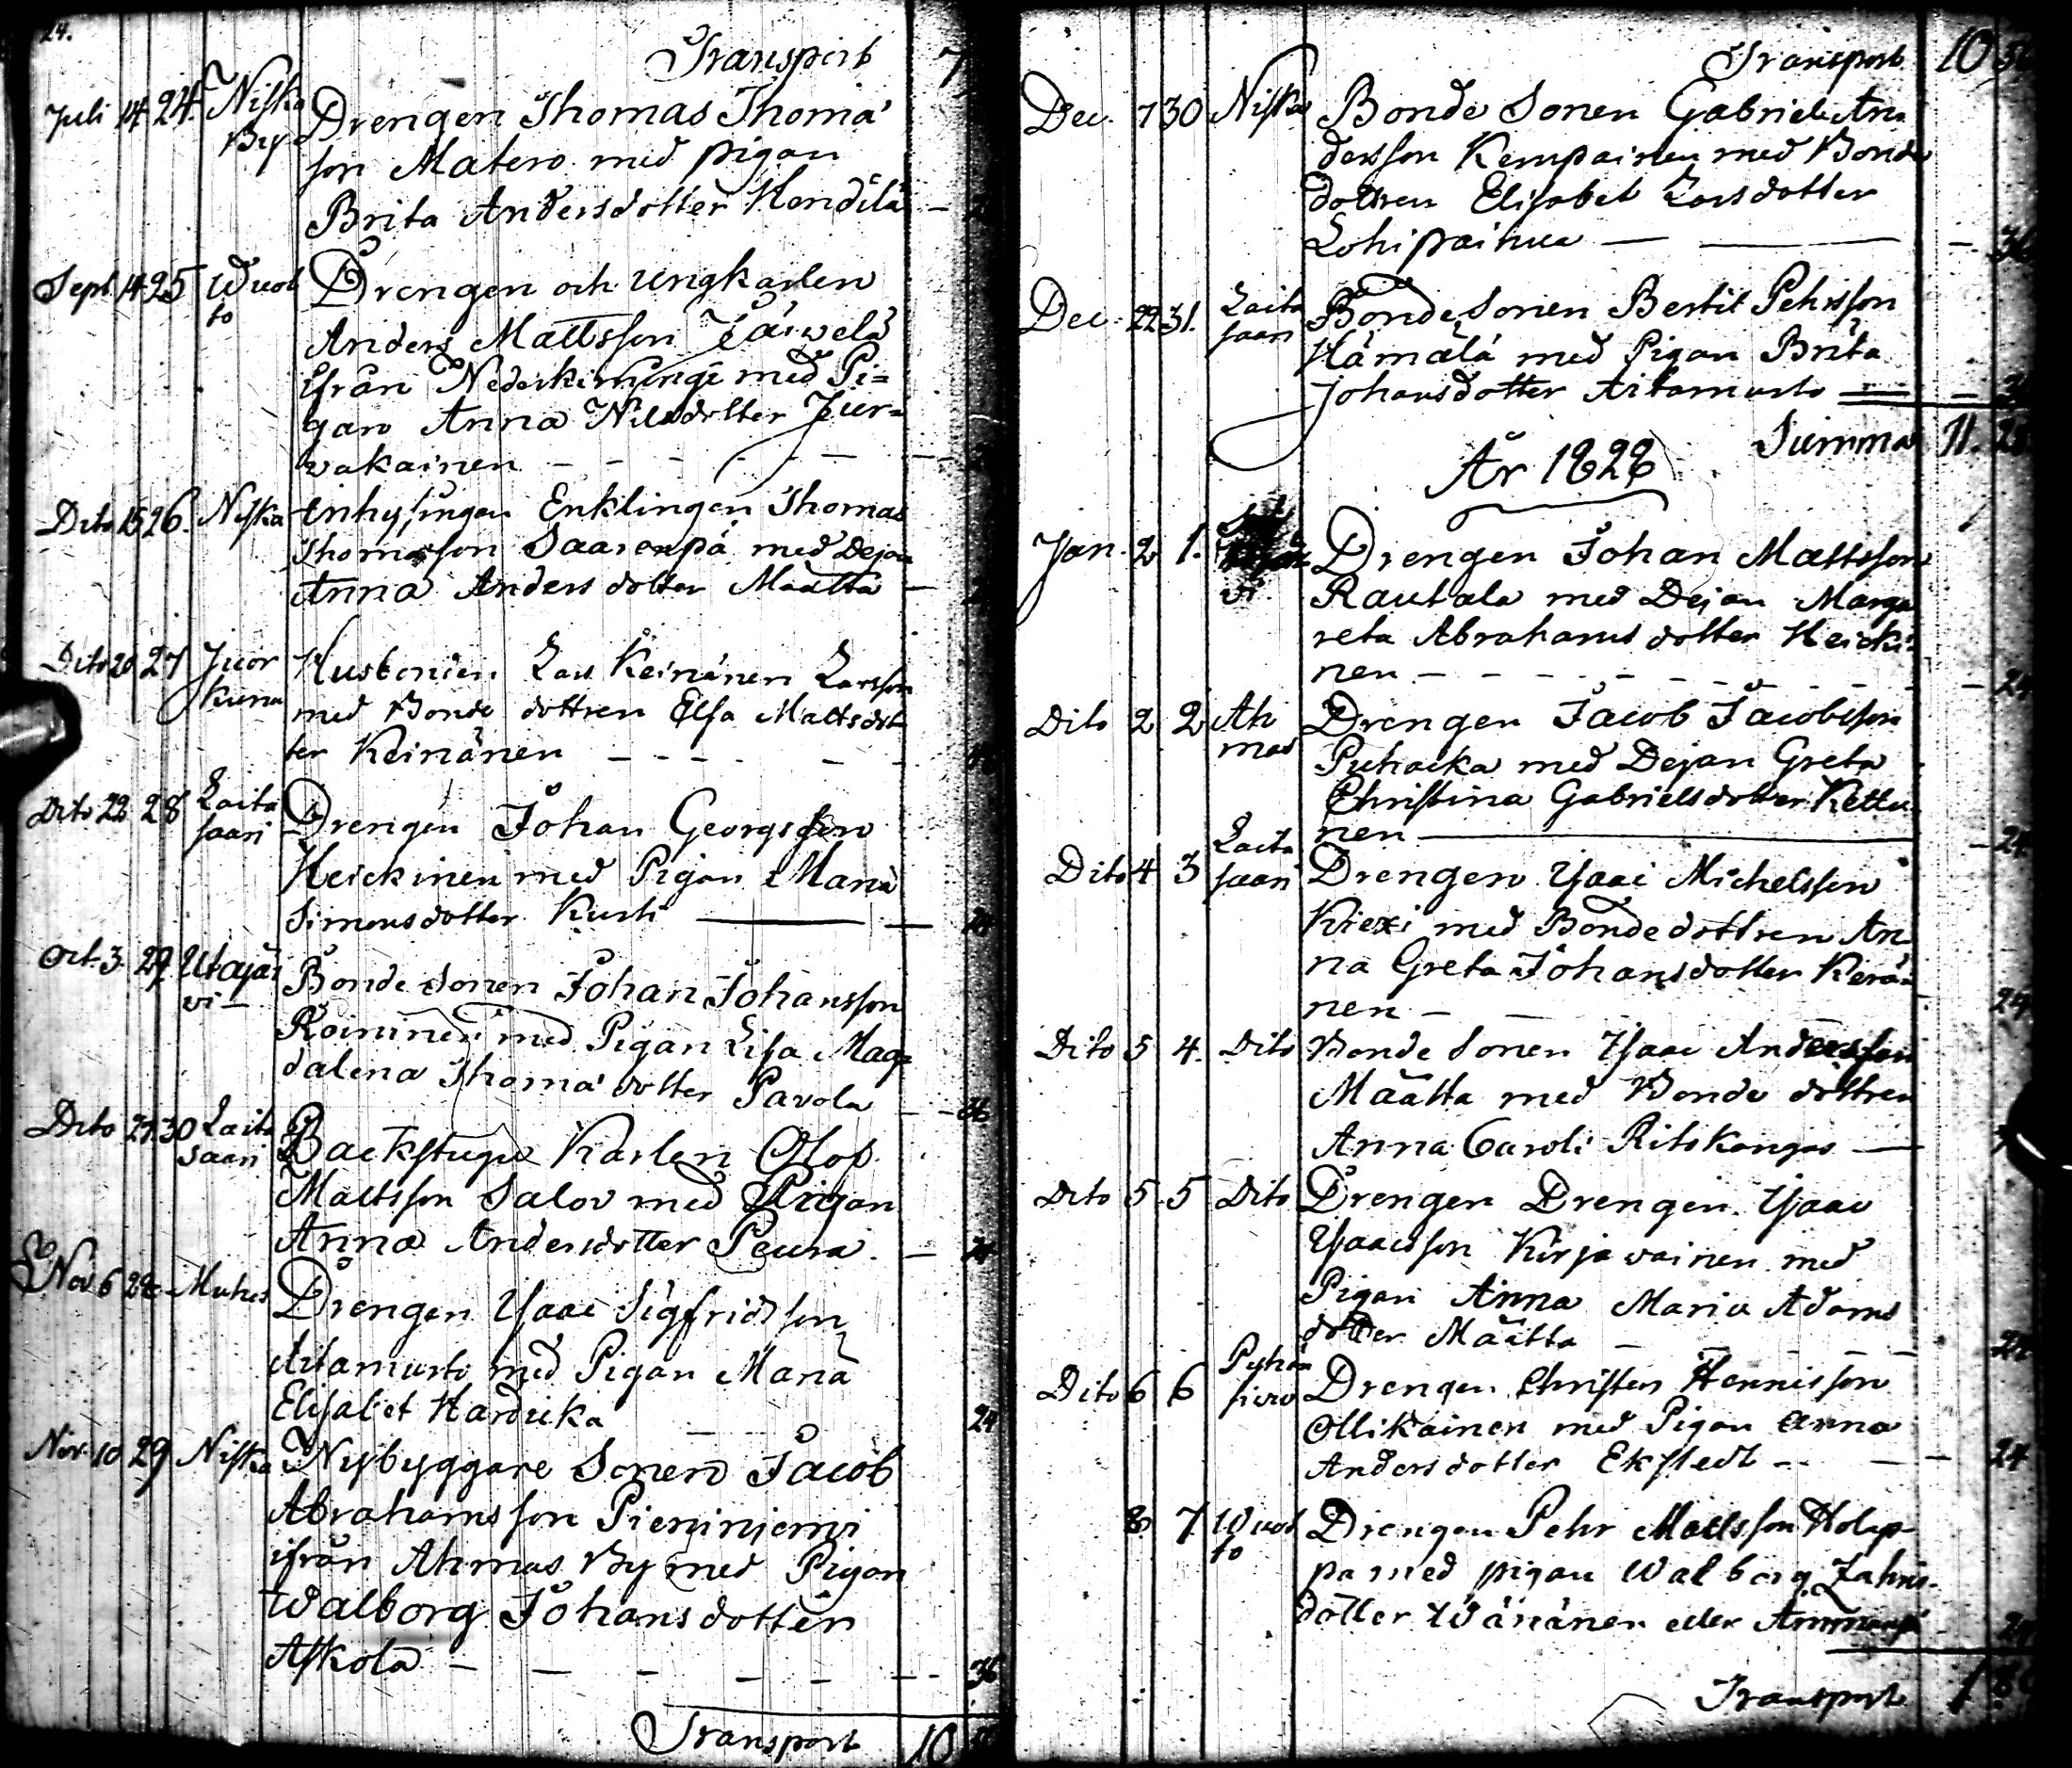 24.
Transport 7
Juli 14 24. Niska Drengen Thomas Thomæ
By son Matero med pigan
Brita Andersdotter Hendilä
Sept. 14 25 Wuol Drengen och Ungkarlen
to Anders Mattsson
ifrån Nederkiminge med Pi=
gan Anna Nilsdotter Jur=
wakainen
Dito 15 26. Niska Inhysingen Enklingen Thomas
Thomasson Saarenpä med Dejan
Anna Anders dotter Määttä
Dito 20 27 Juor Husbonden Lars Keinänen Larsson
kuna med Bonde dottren Elsa Mattsdot
ter Keinänen
Dito 22 28 Laita
saari Drengen Johan Georgsson
Heickinen med Pigan Maria
Simonsdotter Kusti
Oct. 3 29. Utajär Bonde Sonen Johan Johansson
vi Roininen med Pigan Lisa Mag=
dalena Thomæ dotter Pavola
Dito 27 30 Laita Backstugu Karlen Olof
saari Mattsson Salov med Pigan
Anna Andersdotter Peura
Nov 6 28 Muhos Drengen Isaac Sigfridsson
Aitamurto med Pigan Maria
Elisabet Hardicka 24
Nov. 10 29 Niska Nybyggare Sonen Jacob
Abrahamsson Pieniniemi
ifrån Ahmas By med Pigan
Walborg Johansdotter
Askola 36
Transport 10
Transport 10 56
Dec. 7 30 Niska Bonde Sonen Gabriel An
dersson Kempainen med Bonde
dottren Elisabet Larsdotter
Lohipainua 36
Dec. 22 31. Laita Bonde Sonen Bertil Pehrsson
saari Hämälä med Pigan Brita
Johansdotter Aitamurto
Summa 11.
År 1828
Jan. 2 1. Drengen Johan Mattsson
vi Rautala med Dejan Marga
reta Abrahams dotter Heicki
nen 24
Dito 2 2 Ah Drengen Jacob Jacobsson
mas Puhacka med Dejan Greta
Christina Gabrielsdotter Kettu
nen 24
Laita
Dito 4 3 saari Drengen Isaac Michelsson
Kiexi med Bondedottren An
na Greta Johansdotter Kerä
nen 24
Dito 5 4. Dito Bonde Sonen Isaac Andersson
Määtta med Bonde dottren
Anna Caroli Ritokangas
Dito 5 5 Dito Drengen Drengen Isaac
Isaacsson Kirjavainen med
Pigan Anna Maria Adams
dotter Määtta 24
Pyhän
Dito 6 6 sivu Drengen Christer Hennisson
Ollikainen med Pigan Anna
Andersdotter Ekstedt 24
8 7 Wuol Drengen Pehr Mattsson Holap
to pa med pigan Walborg Zahris
dotter Wänänen eller Ämmenpä 24
Transport